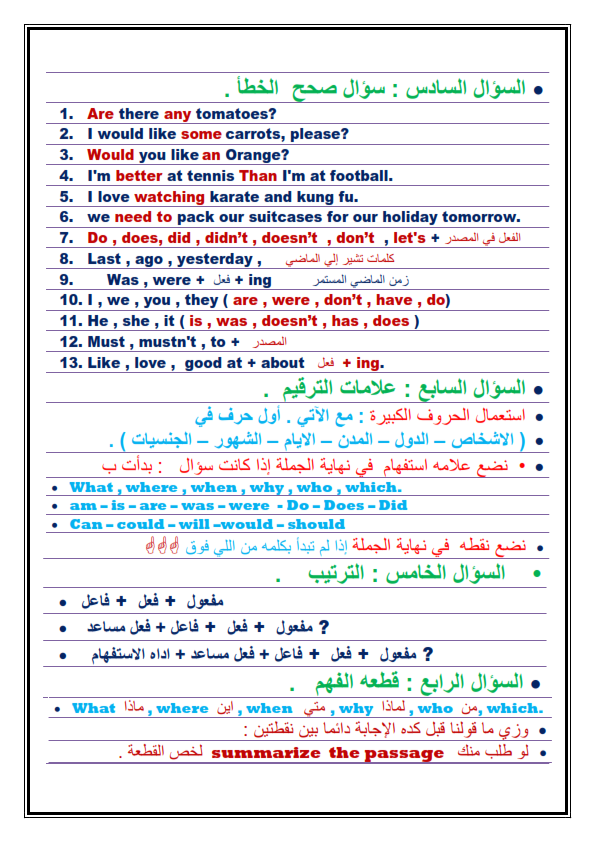 • السؤال السادس : سؤال صحح الخطأ .
1. Are there any tomatoes?
2. I would like some carrots, please?
3. Would you like an Orange?
4. I'm better at tennis Than I'm at football.
5. I love watching karate and kung fu.
6. we need to pack our suitcases for our holiday tomorrow.
7. Do , does, did , didn't , doesn't , don't , let's + الفعل في المصدر
8. Last , ago , yesterday , كلمات تشير إلي الماضي
9. Was , were + فعل + ing زمن الماضي المستمر
10. I , we , you , they ( are , were , don't , have , do)
11. He , she , it ( is , was , doesn't , has , does )
12. Must , mustn't , to + المصدر
13. Like , love , good at + about فعل + ing.
• السؤال السابع : علامات الترقيم .
• استعمال الحروف الكبيرة : مع الآتي . أول حرف في
• ( الاشخاص – الدول – المدن – الايام – الشهور – الجنسيات ) .
• • نضع علامه استفهام في نهاية الجملة إذا كانت سؤال : بدأت ب
• What , where , when , why , who , which.
• am – is – are – was – were - Do – Does – Did
• Can – could – will –would – should
• نضع نقطه في نهاية الجملة إذا لم تبدأ بكلمه من اللي فوق ☝☝☝
• السؤال الخامس : الترتيب .
• مفعول + فعل + فاعل
• ? مفعول + فعل + فاعل + فعل مساعد
• ? مفعول + فعل + فاعل + فعل مساعد + اداه الاستفهام
• السؤال الرابع : قطعه الفهم .
• What ماذا , where اين , when متي , why لماذا , who من, which.
• وزي ما قولنا قبل كده الإجابة دائما بين نقطتين :
• لو طلب منك summarize the passage لخص القطعة .